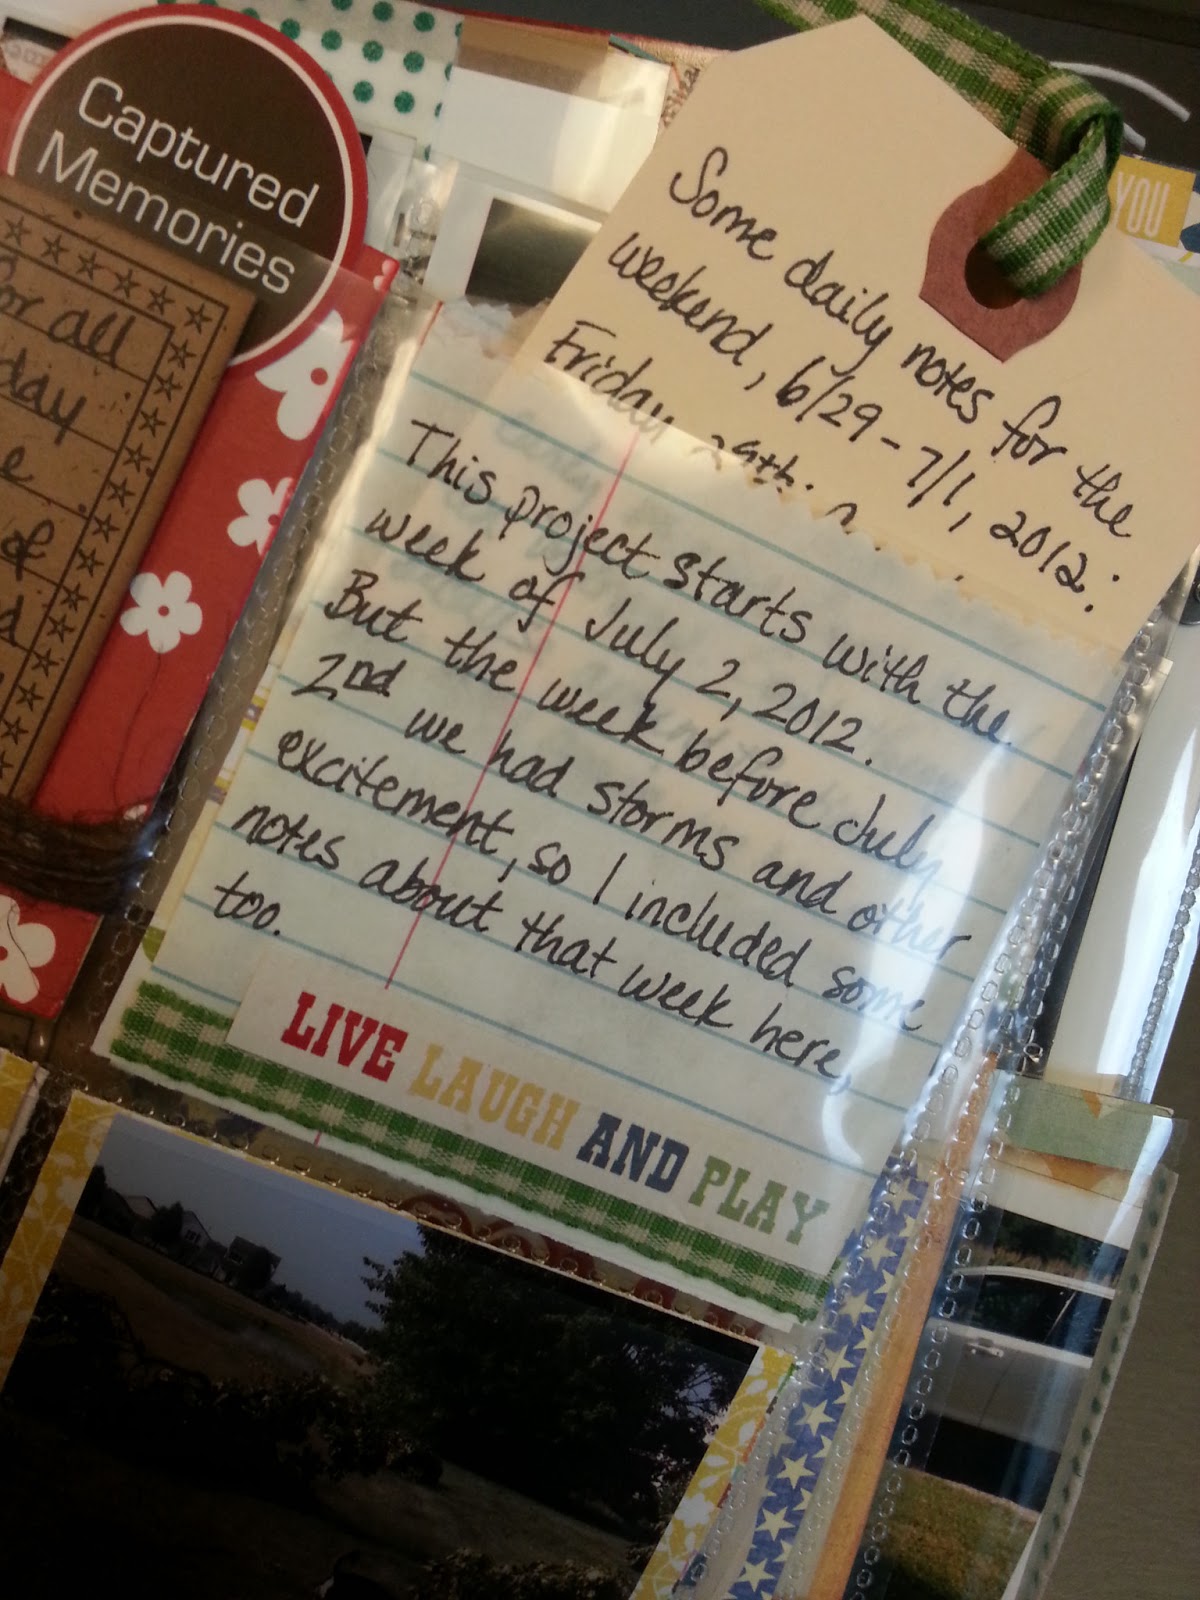 Captured
Memories
for all
day
of
YOU
Some daily notes for the
weekend, 6/29 - 7/1, 2012:
Friday 29th:
This project starts with the
week of July 2, 2012.
But the week before July
2nd we had storms and other
excitement, so I included some
notes about that week here,
too.
LIVE LAUGH AND PLAY